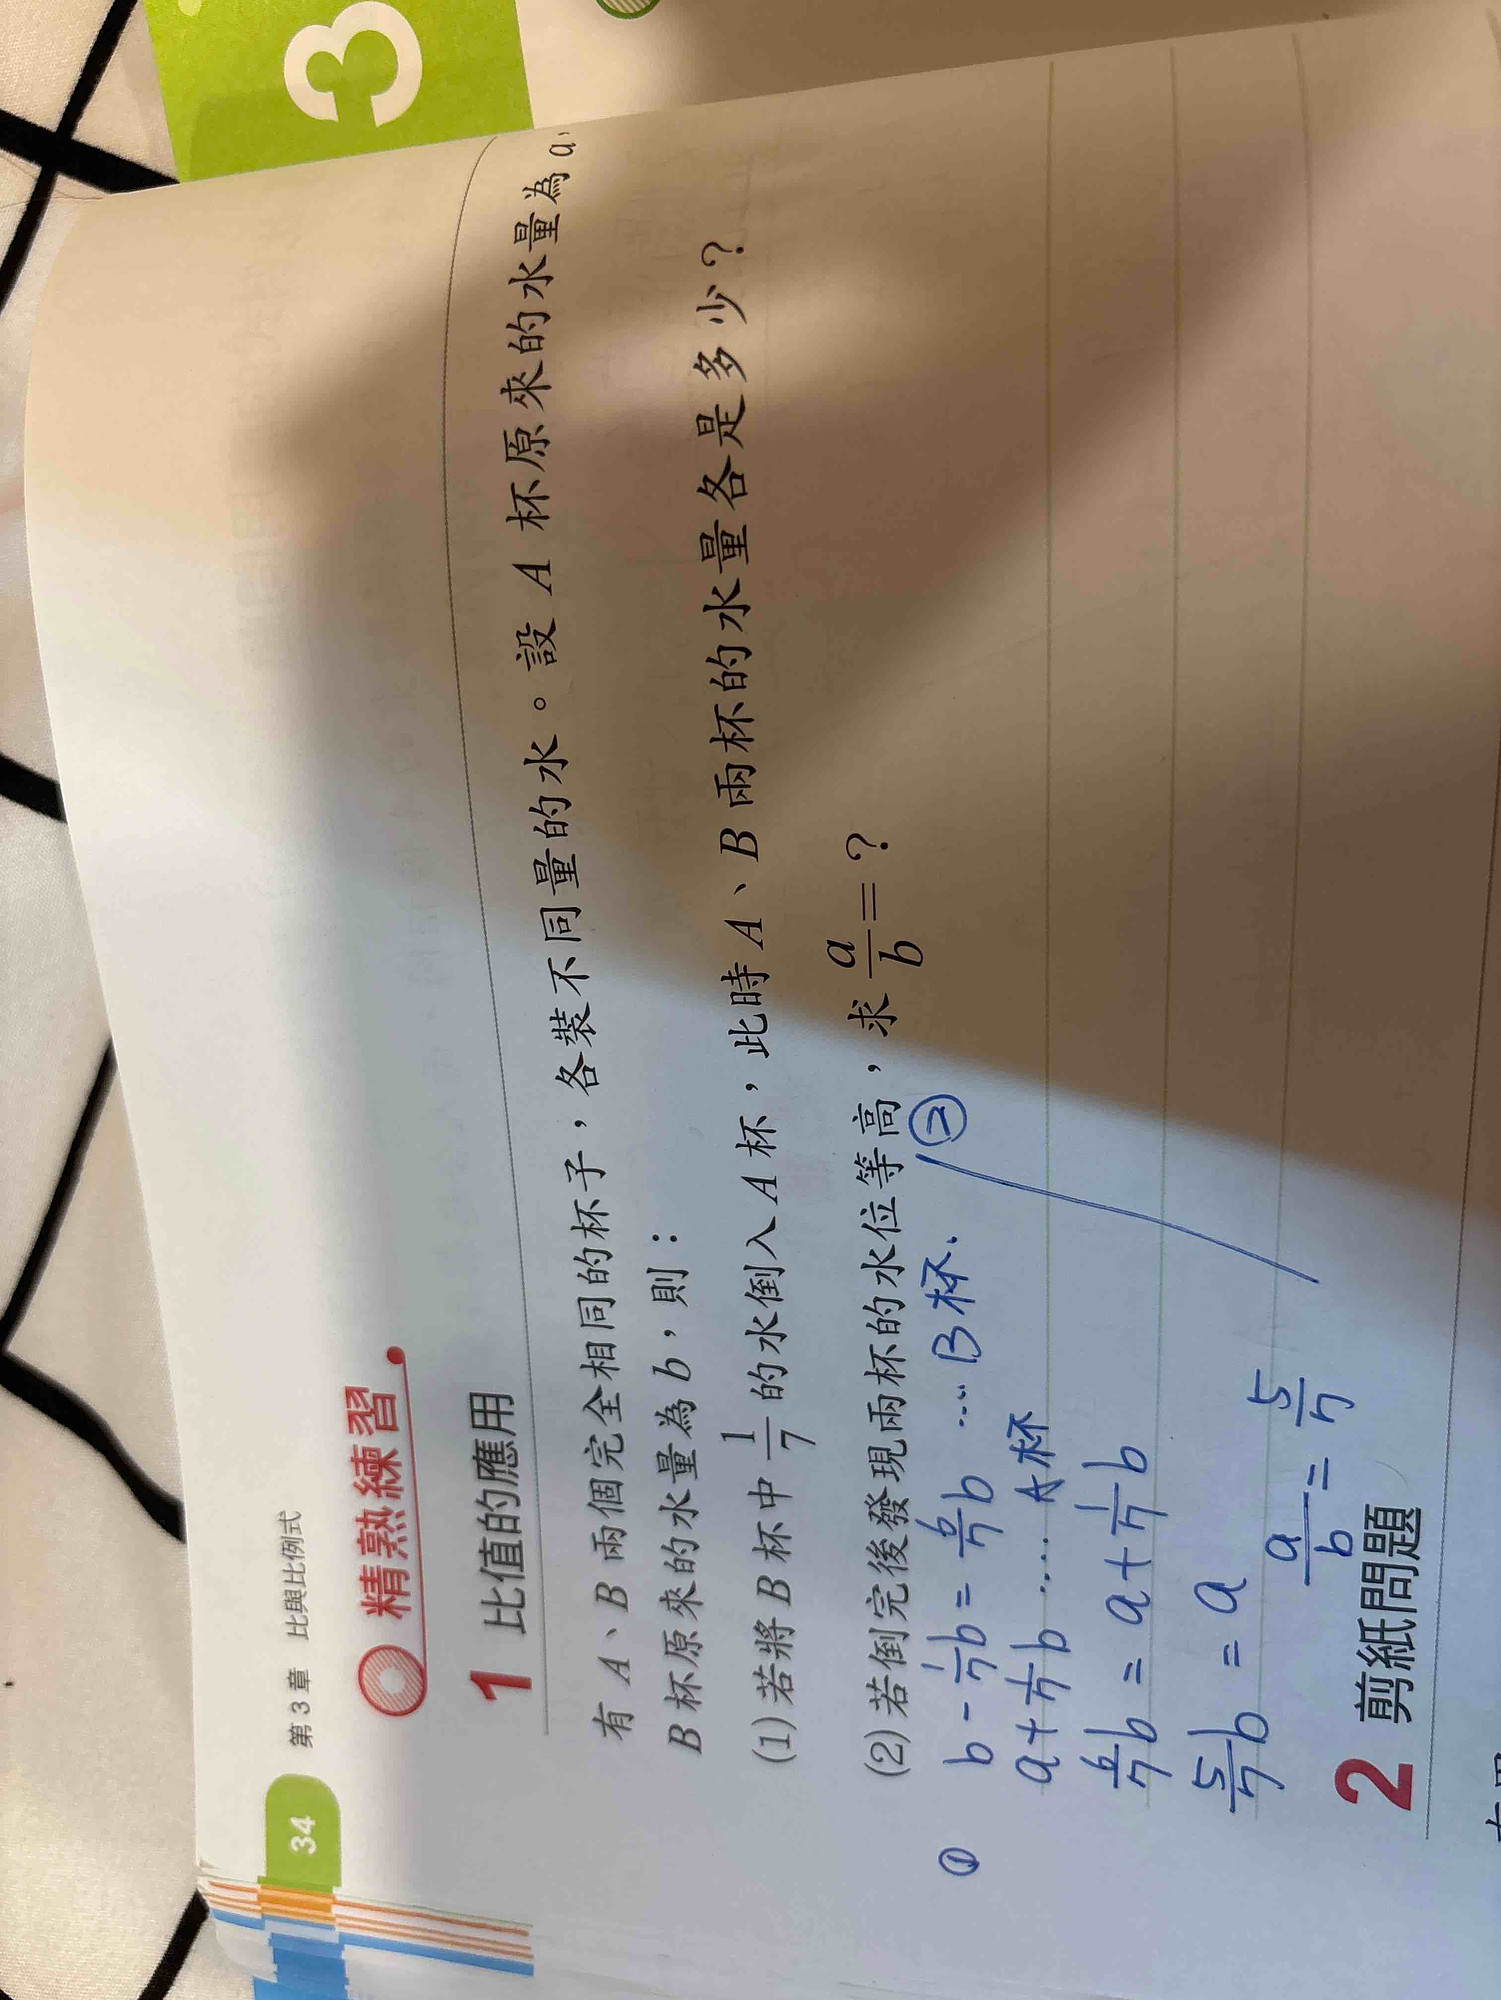 3
34 第3章 比與比例式
精熟練習
1 比值的應用
有 A、B 兩個完全相同的杯子，各裝不同量的水。設 A 杯原來的水量為 a，
B 杯原來的水量為 b，則：
(1) 若將 B 杯中 1/7 的水倒入 A 杯，此時 A、B 兩杯的水量各是多少？
(2) 若倒完後發現兩杯的水位等高，求 a/b = ？
① b - 1/7 b = 6/7 b .... B杯、 ②
a + 1/7 b .... A杯
6/7 b = a + 1/7 b
5/7 b = a
a/b = 5/7
2 剪紙問題